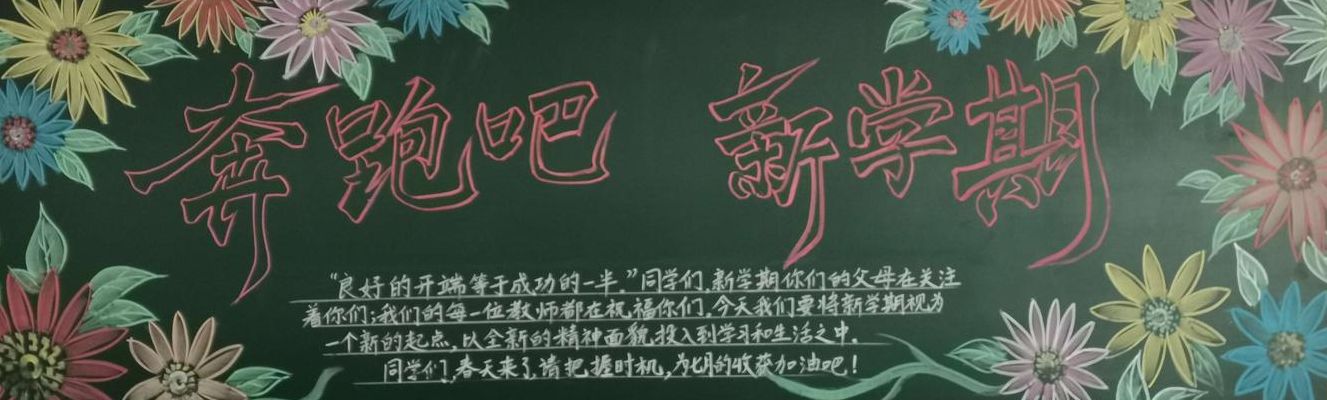 奔跑吧 新学期
“良好的开端等于成功的一半。”同学们,新学期你们的父母在关注
着你们;我们的每一位教师都在祝福你们,今天我们要将新学期视为
一个新的起点,以全新的精神面貌,投入到学习和生活之中。
同学们,春天来了,请把握时机,为七月的收获加油吧!